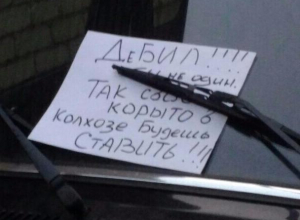 ДЕБИЛ!!!!
ТЫ НЕ ОДИН.
ТАК СВОЁ
КОРЫТО В
КОЛХОЗЕ БУДЕШЬ
СТАВИТЬ..!!!